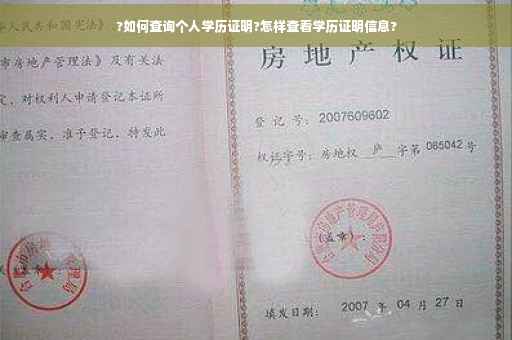 ?如何查询个人学历证明?怎样查看学历证明信息?
人民共和国宪法》
市房地产管理法》及有关法
定，对权利人申请登记本证所
审查属实，准予登记，特发此
房地产权证
登记号：2007609602
权证字号：房地权 庐 字第 065042 号
(盖章)：
填发日期：2007 年 04 月 27 日